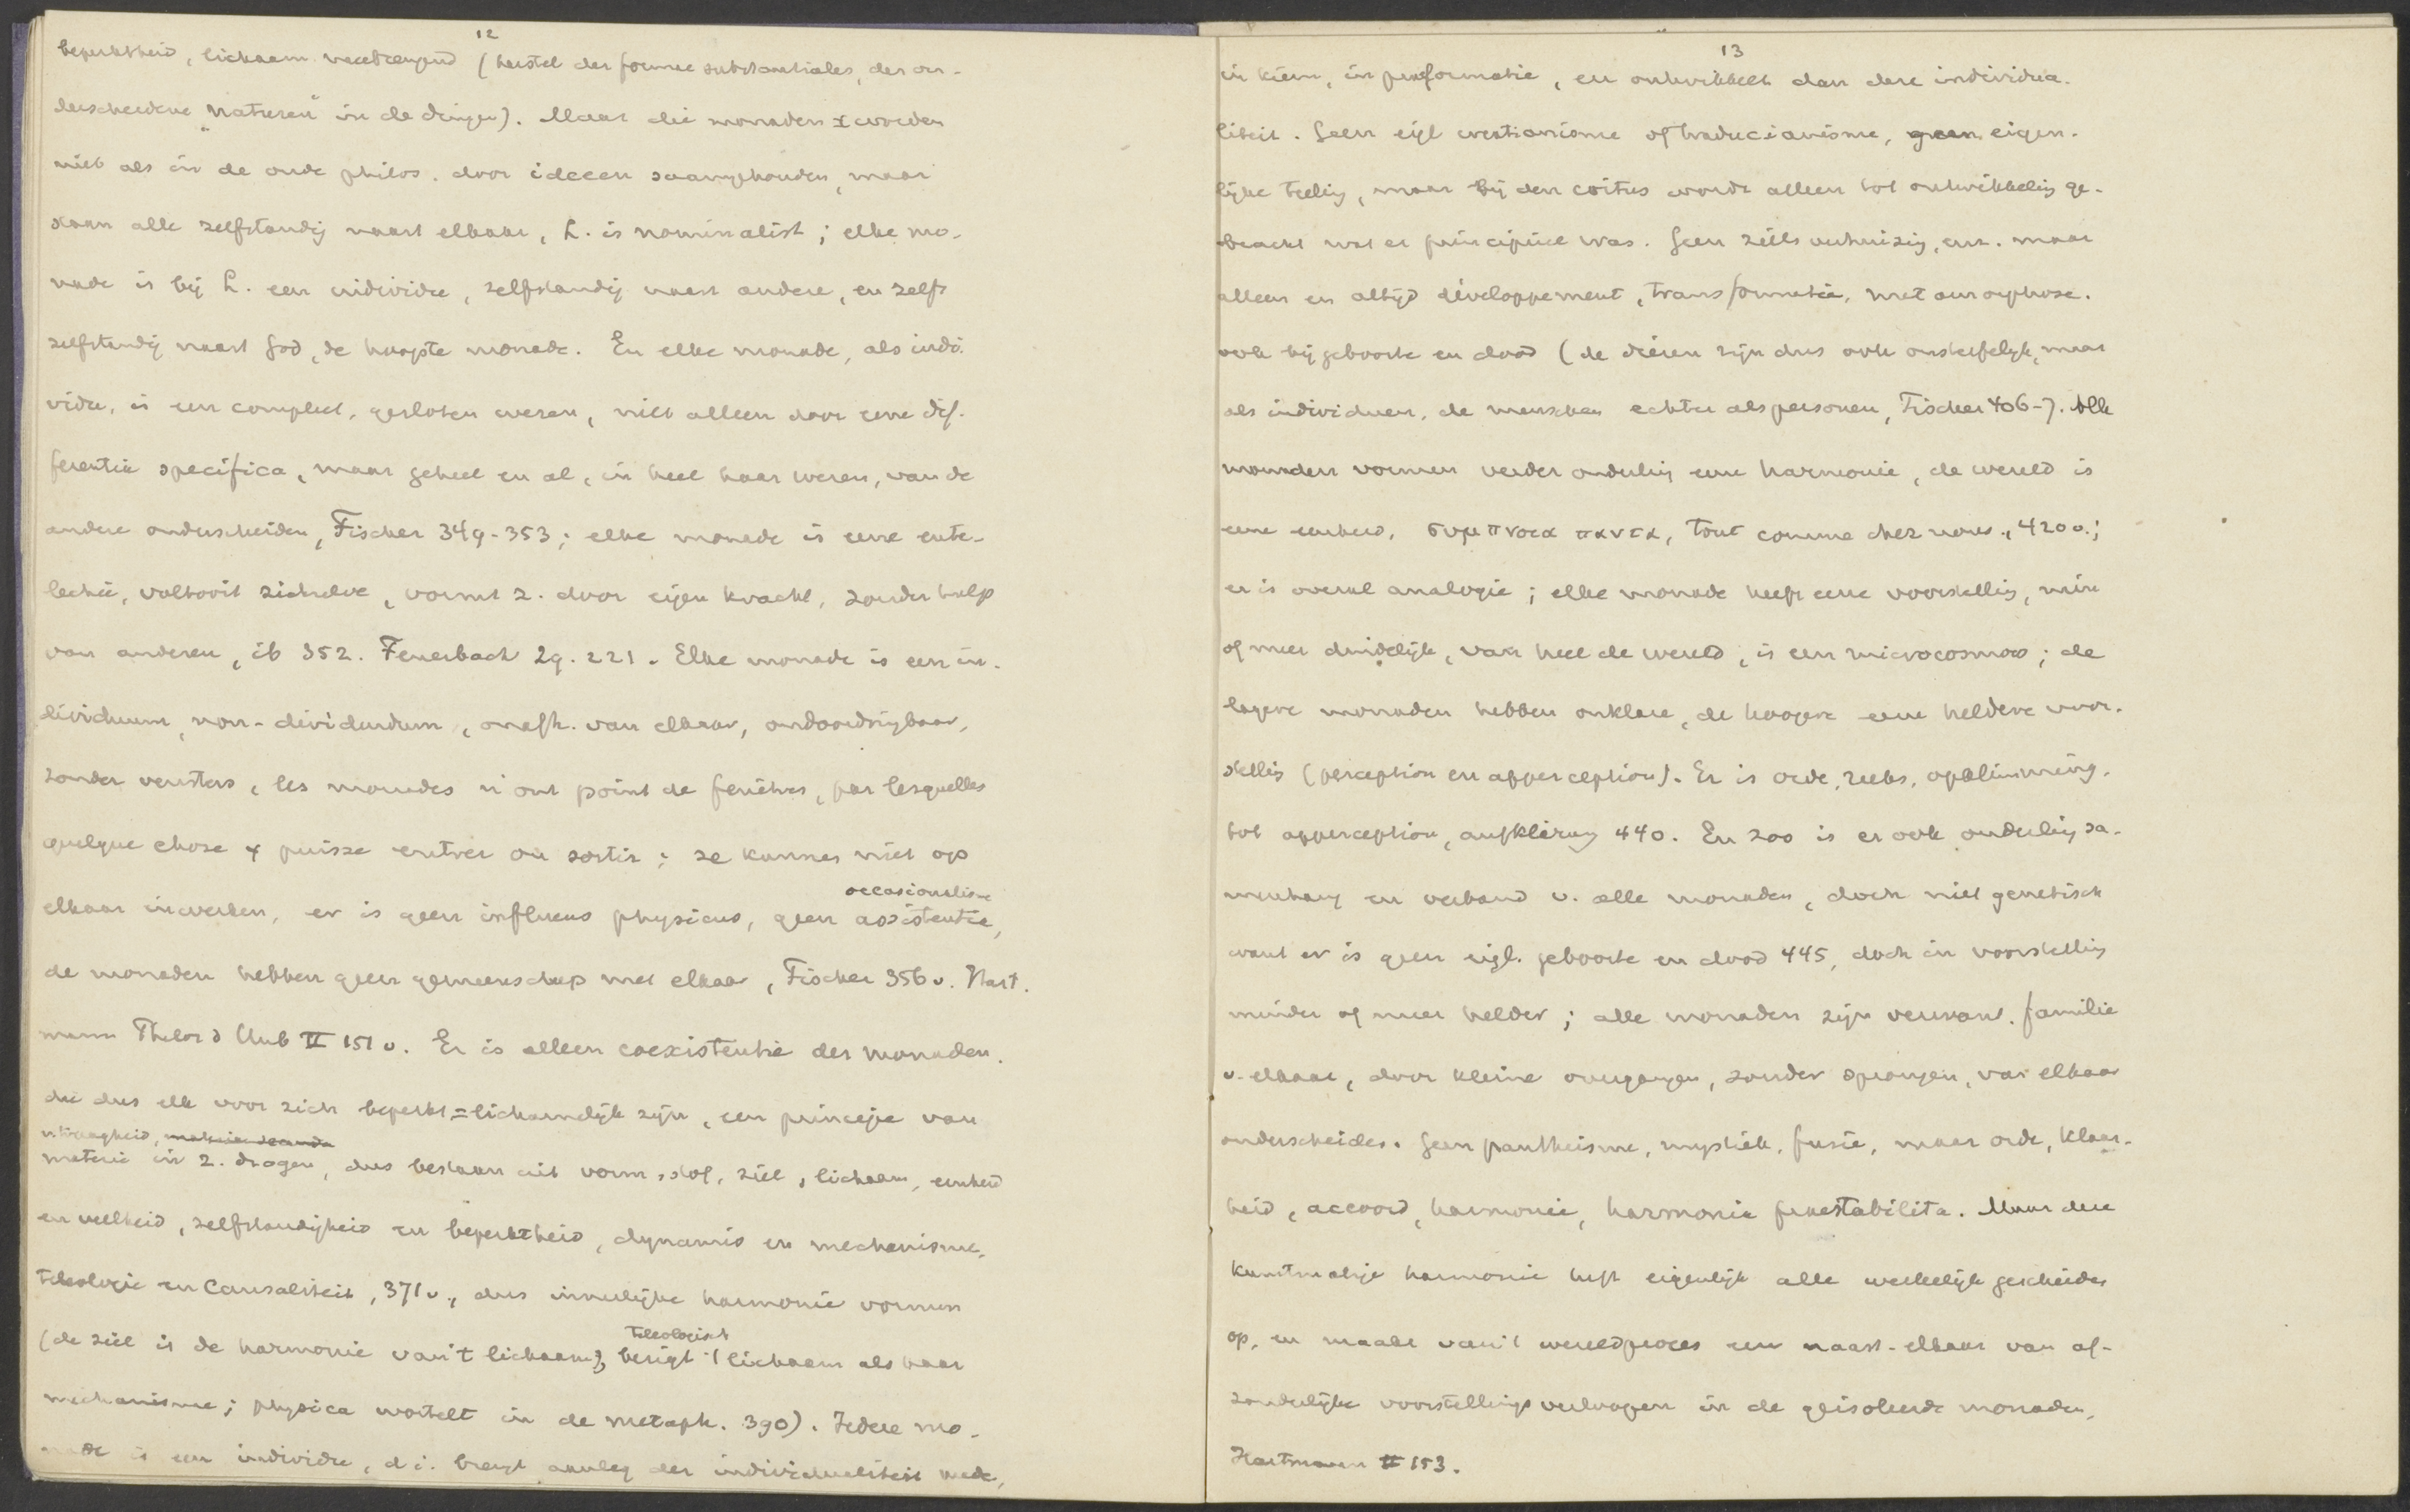 12
beperktheid, lichaam veredrengend (herstel der formae substantiales, der on-
derscheidene „naturen” in de dingen). Maar die monaden x worden
niet als in de oude philos. door ideeen saamgehouden, maar
staan alle zelfstandig naast elkaar, L. is nominalist; elke mo-
nade is bij L. een individu, zelfstandig naast andere, en zelfs
zelfstandig naast God, de hoogste monade. En elke monade, als indi-
vidu, is een compleet, gesloten wezen, niet alleen door eene dif-
ferentia specifica, maar geheel en al, in heel haar wezen, van de
andere onderscheiden, Fischer 349-353; elke monade is eene ente-
lechie, voltooit zichzelve, vormt z. door eigen kracht, zonder hulp
van anderen, ib 352. Feuerbach 29. 221. Elke monade is een in-
dividuum, non-dividendum, onafh. van elkaar, ondoordringbaar,
zonder vensters, les monades n'ont point de fenêtres, par lesquelles
quelque chose y puisse entrer ou sortir; ze kunnen niet op
elkaar inwerken, er is geen influxus physicus, geen occasionalis- assistentie,
de monaden hebben geen gemeenschap met elkaar, Fischer 356 v. Hart-
mann II 151 v. Er is alleen coexistentie der monaden.
die dus elk voor zich beperkt = lichamelijk zijn, een principe van
materie in z. dragen, dus bestaan uit vorm, stof, ziel, lichaam, eenheid
en veelheid, zelfstandigheid en beperktheid, dynamis en mechanisme,
teleologie en causaliteit, 371 v., dus innerlijke harmonie vormen
(de ziel is de harmonie van 't lichaam), bezigt teleologisch 't lichaam als haar
mechanisme; physica wortelt in de metaph. 390). Iedere mo-
nade is een individu, d.i. brengt aanleg der individualiteit mede,
13
in kiem, in praeformatie, en ontwikkelt dan deze individua-
liteit. Geen eigl creatianisme of traducianisme, geen eigen-
lijke teeling, maar bij den coitus wordt alleen tot ontwikkeling ge-
bracht wat er principieel was. Geen zielsverhuizing, enz. maar
alleen en altijd développement, transformatie, metamorphose.
ook bij geboorte en dood (de dieren zijn dus ook onsterfelijk, maar
als individuen, de menschen echter als personen, Fischer 406-). Alle
monaden vormen verder onderling eene harmonie, de wereld is
eene eenheid, συμπνοια παντα, tout comme chez nous, 420 v.;
er is overal analogie; elke monade heeft eene voorstelling, min
of meer duidelijk, van heel de wereld, is een microcosmos; de
lagere monaden hebben onklare, de hoogere eene heldere voor-
stelling (perception en apperception). Er is orde, reeks, opklimming,
tot apperception, aufklärung 440. En zoo is er ook onderling sa-
menhang en verband v. alle monaden, doch niet genetisch
want er is geen eigl. geboorte en dood 445, doch in voorstelling
minder of meer helder; alle monaden zijn verwant. familie
v. elkaar, door kleine overgangen, zonder sprongen, van elkaar
onderscheiden. Geen pantheisme, mystiek, fusie, maar orde, klaar-
heid, accoord, harmonie, harmonia praestabilita. Maar deze
kunstmatige harmonie heft eigenlijk alle werkelijk geschieden
op, en maakt van 't wereldproces een naast-elkaar van af-
zonderlijke voorstellings in de geisoleerde monaden,
Hartmann II 153.